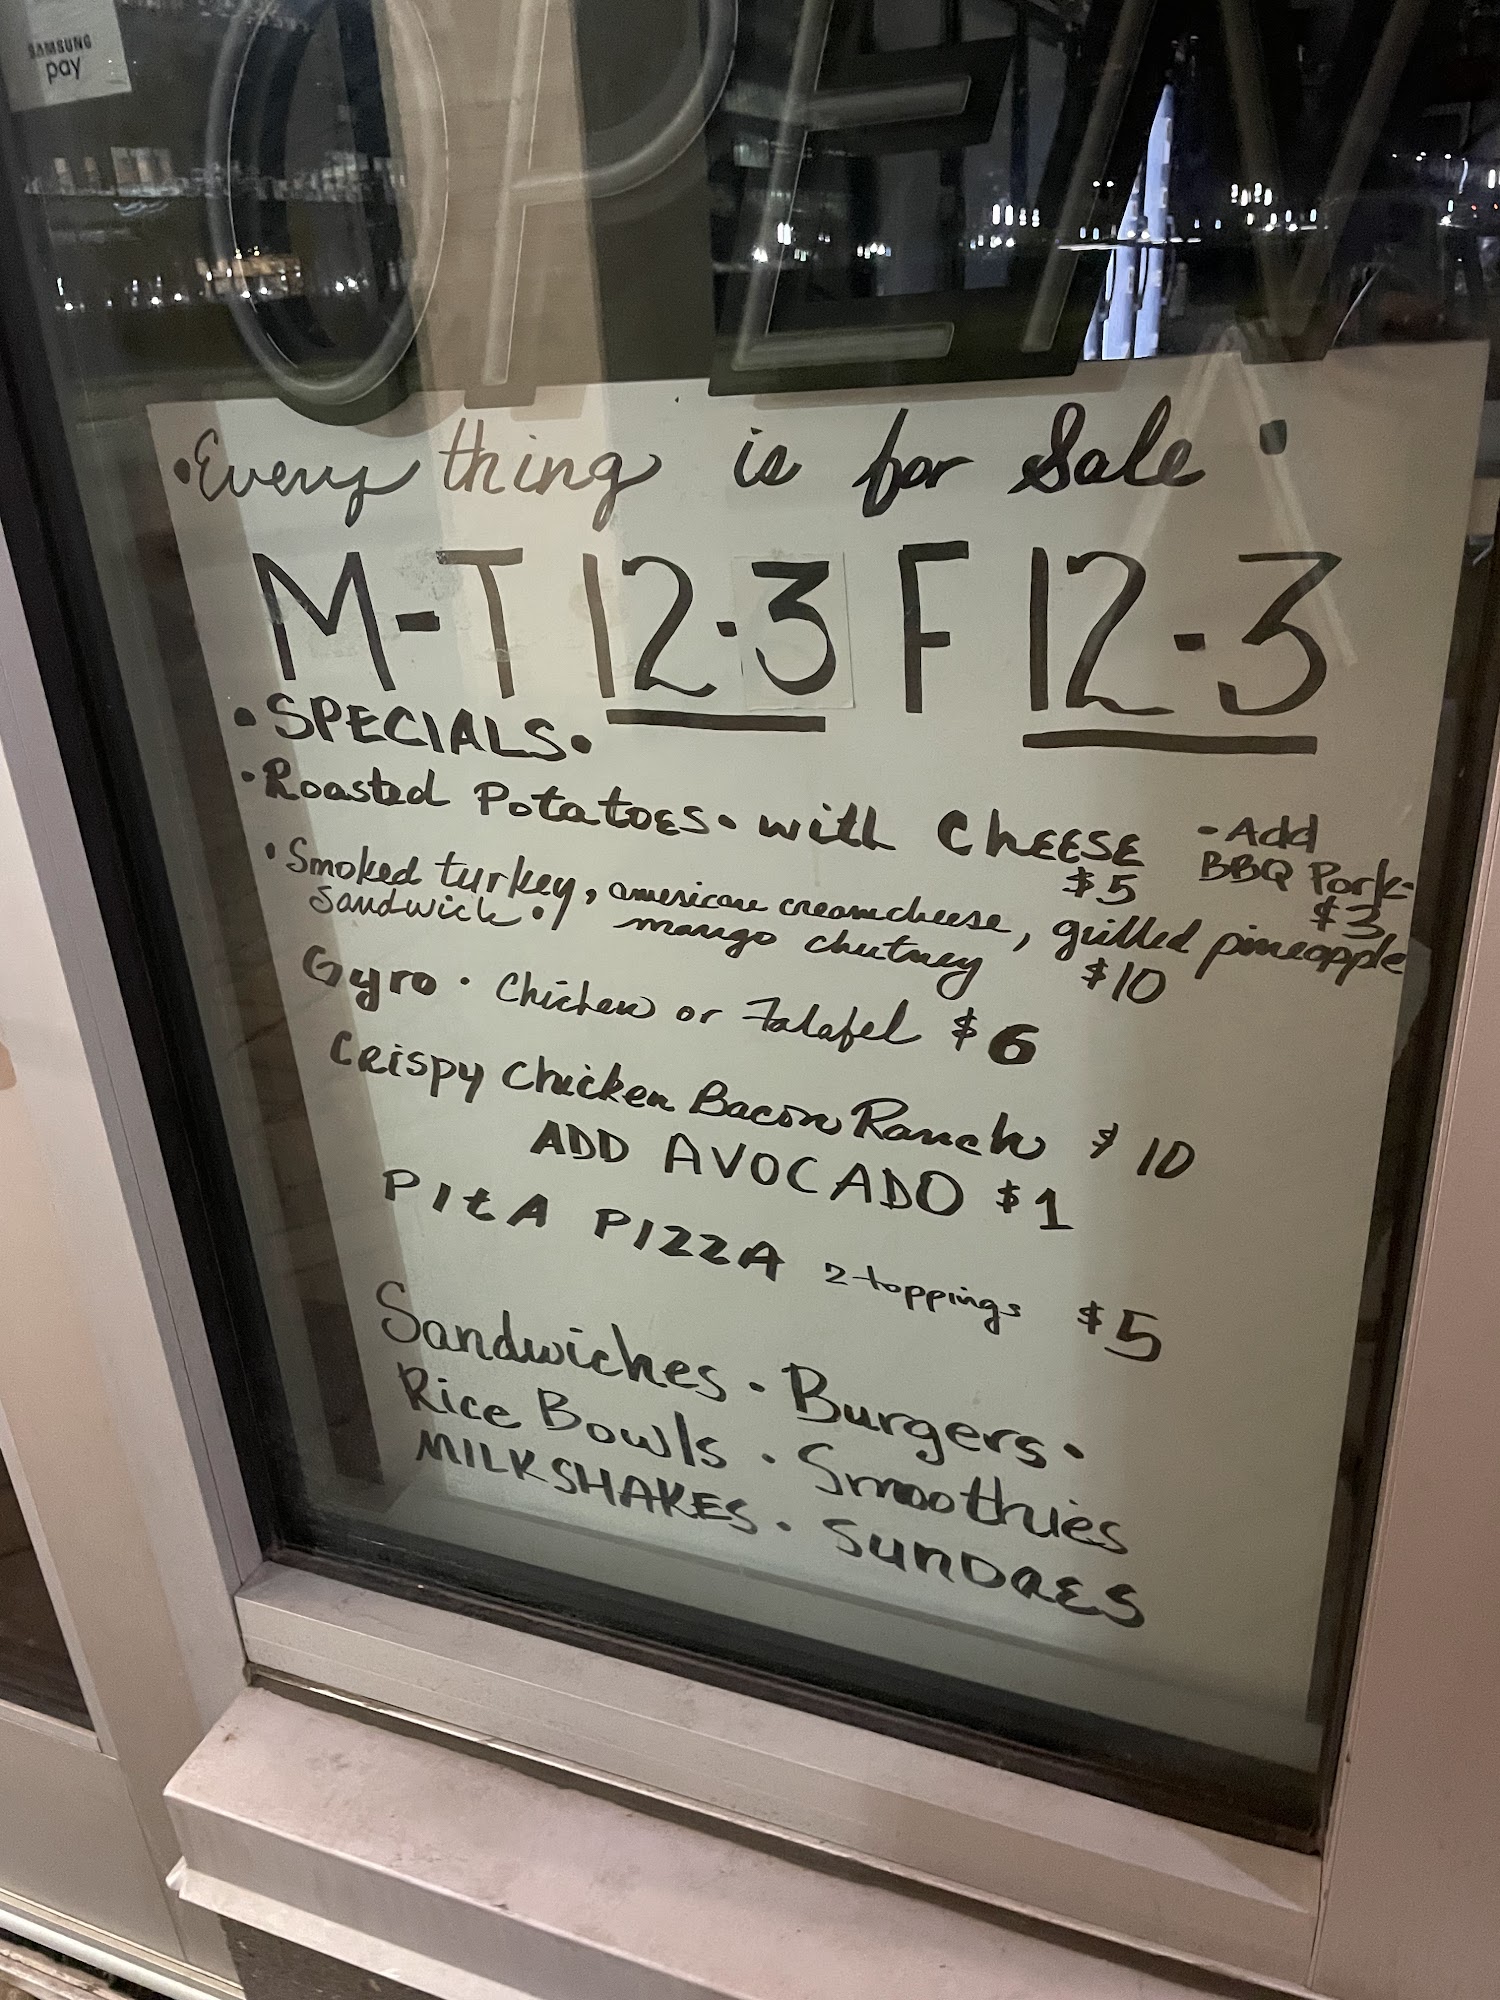 SAMSUNG
pay
OPEN
• Everything is for Sale •
M-T 12-3 F 12-3
• SPECIALS •
• Roasted Potatoes • with CHEESE $5
- Add
BBQ Pork -
$3
• Smoked turkey, american creamcheese, grilled pineapple
Sandwich • mango chutney $10
Gyro • Chicken or Falafel $6
Crispy Chicken Bacon Ranch $10
ADD AVOCADO $1
PItA PIZZA 2 toppings $5
Sandwiches • Burgers •
Rice Bowls • Smoothies
MILKSHAKES • SUNDAES